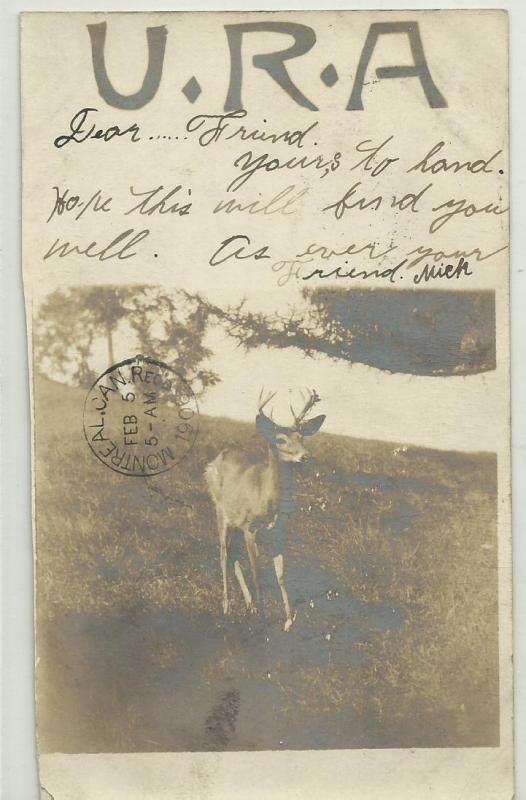 U.R.A
Dear..... Friend.
Your,s to hand.
Hope this will find you
well. As ever your
Friend. Mick
MONTREAL. CAN. REC'D
FEB 5
5-AM
1906